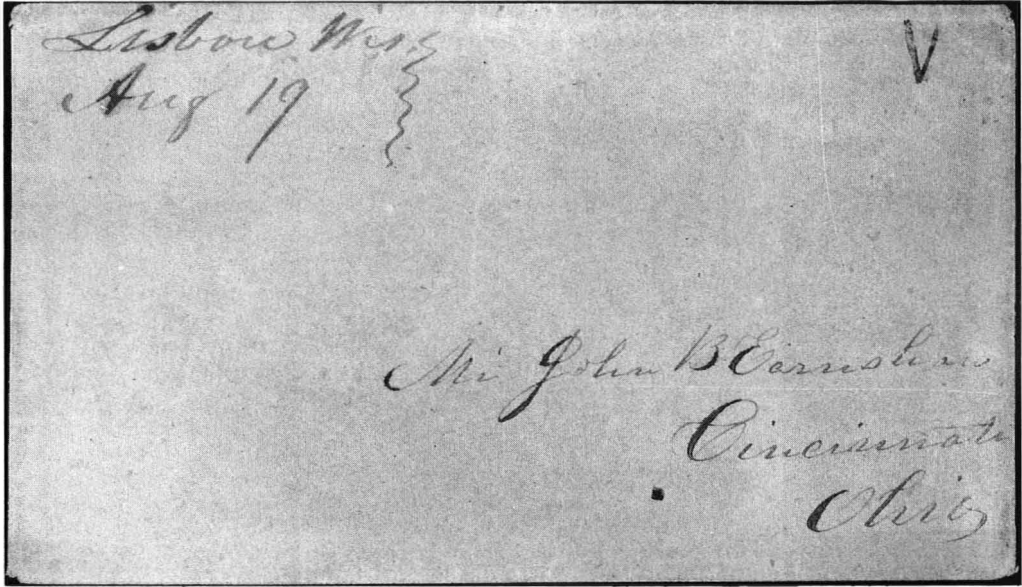 Lisbon Wis
Aug 19
V
Mr John B Earnshaw
Cincinnati
Ohio